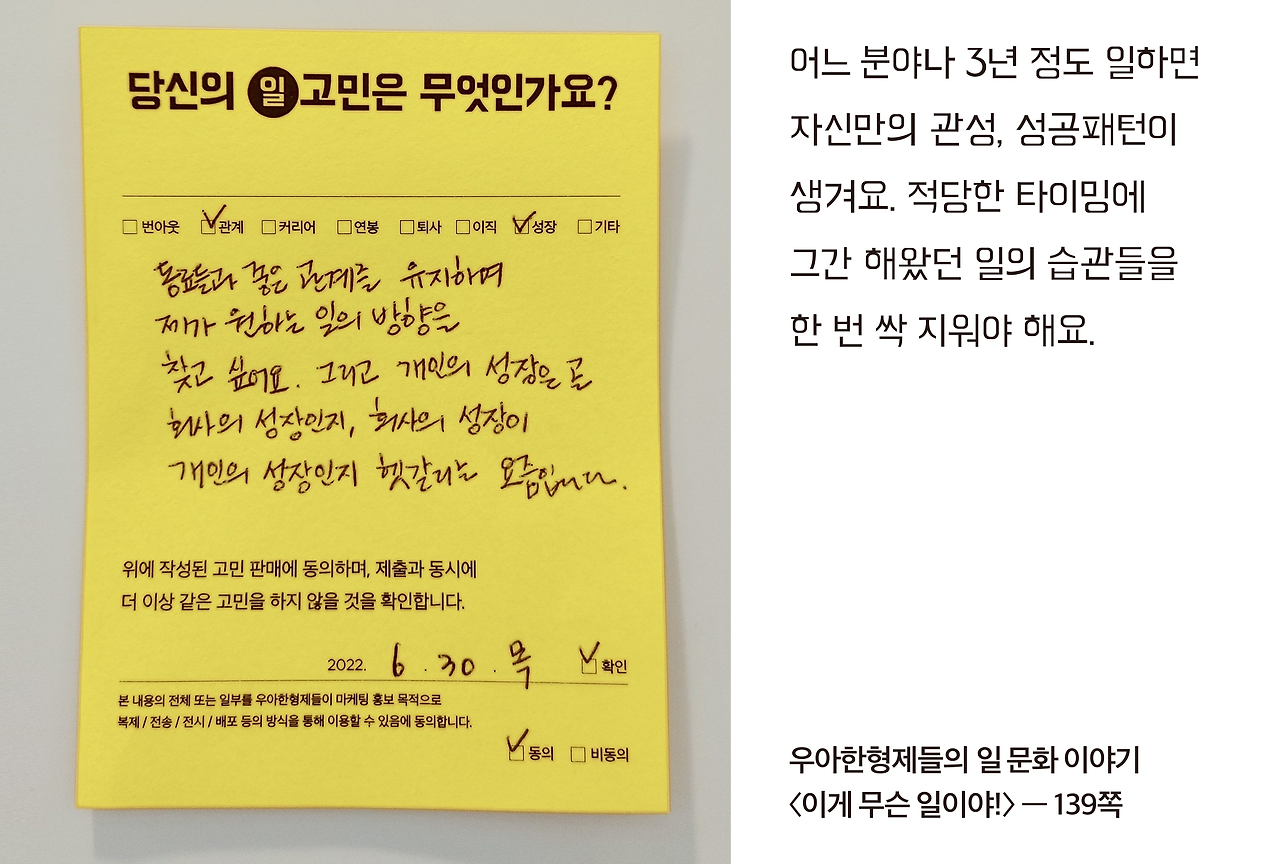 당신의 일고민은 무엇인가요?
번아웃 관계 커리어 연봉 퇴사 이직 성장 기타
동료들과 좋은 관계를 유지하며
제가 원하는 일의 방향을
찾고 싶어요. 그리고 개인의 성장은 곧
회사의 성장인지, 회사의 성장이
개인의 성장인지 헷갈리는 요즘입니다.
위에 작성된 고민 판매에 동의하며, 제출과 동시에
더 이상 같은 고민을 하지 않을 것을 확인합니다.
2022. 6. 30. 목 확인
본 내용의 전체 또는 일부를 우아한형제들이 마케팅 홍보 목적으로
복제 / 전송 / 전시 / 배포 등의 방식을 통해 이용할 수 있음에 동의합니다.
동의 비동의
어느 분야나 3년 정도 일하면
자신만의 관성, 성공패턴이
생겨요. 적당한 타이밍에
그간 해왔던 일의 습관들을
한 번 싹 지워야 해요.
우아한형제들의 일 문화 이야기
〈이게 무슨 일이야!〉 — 139쪽